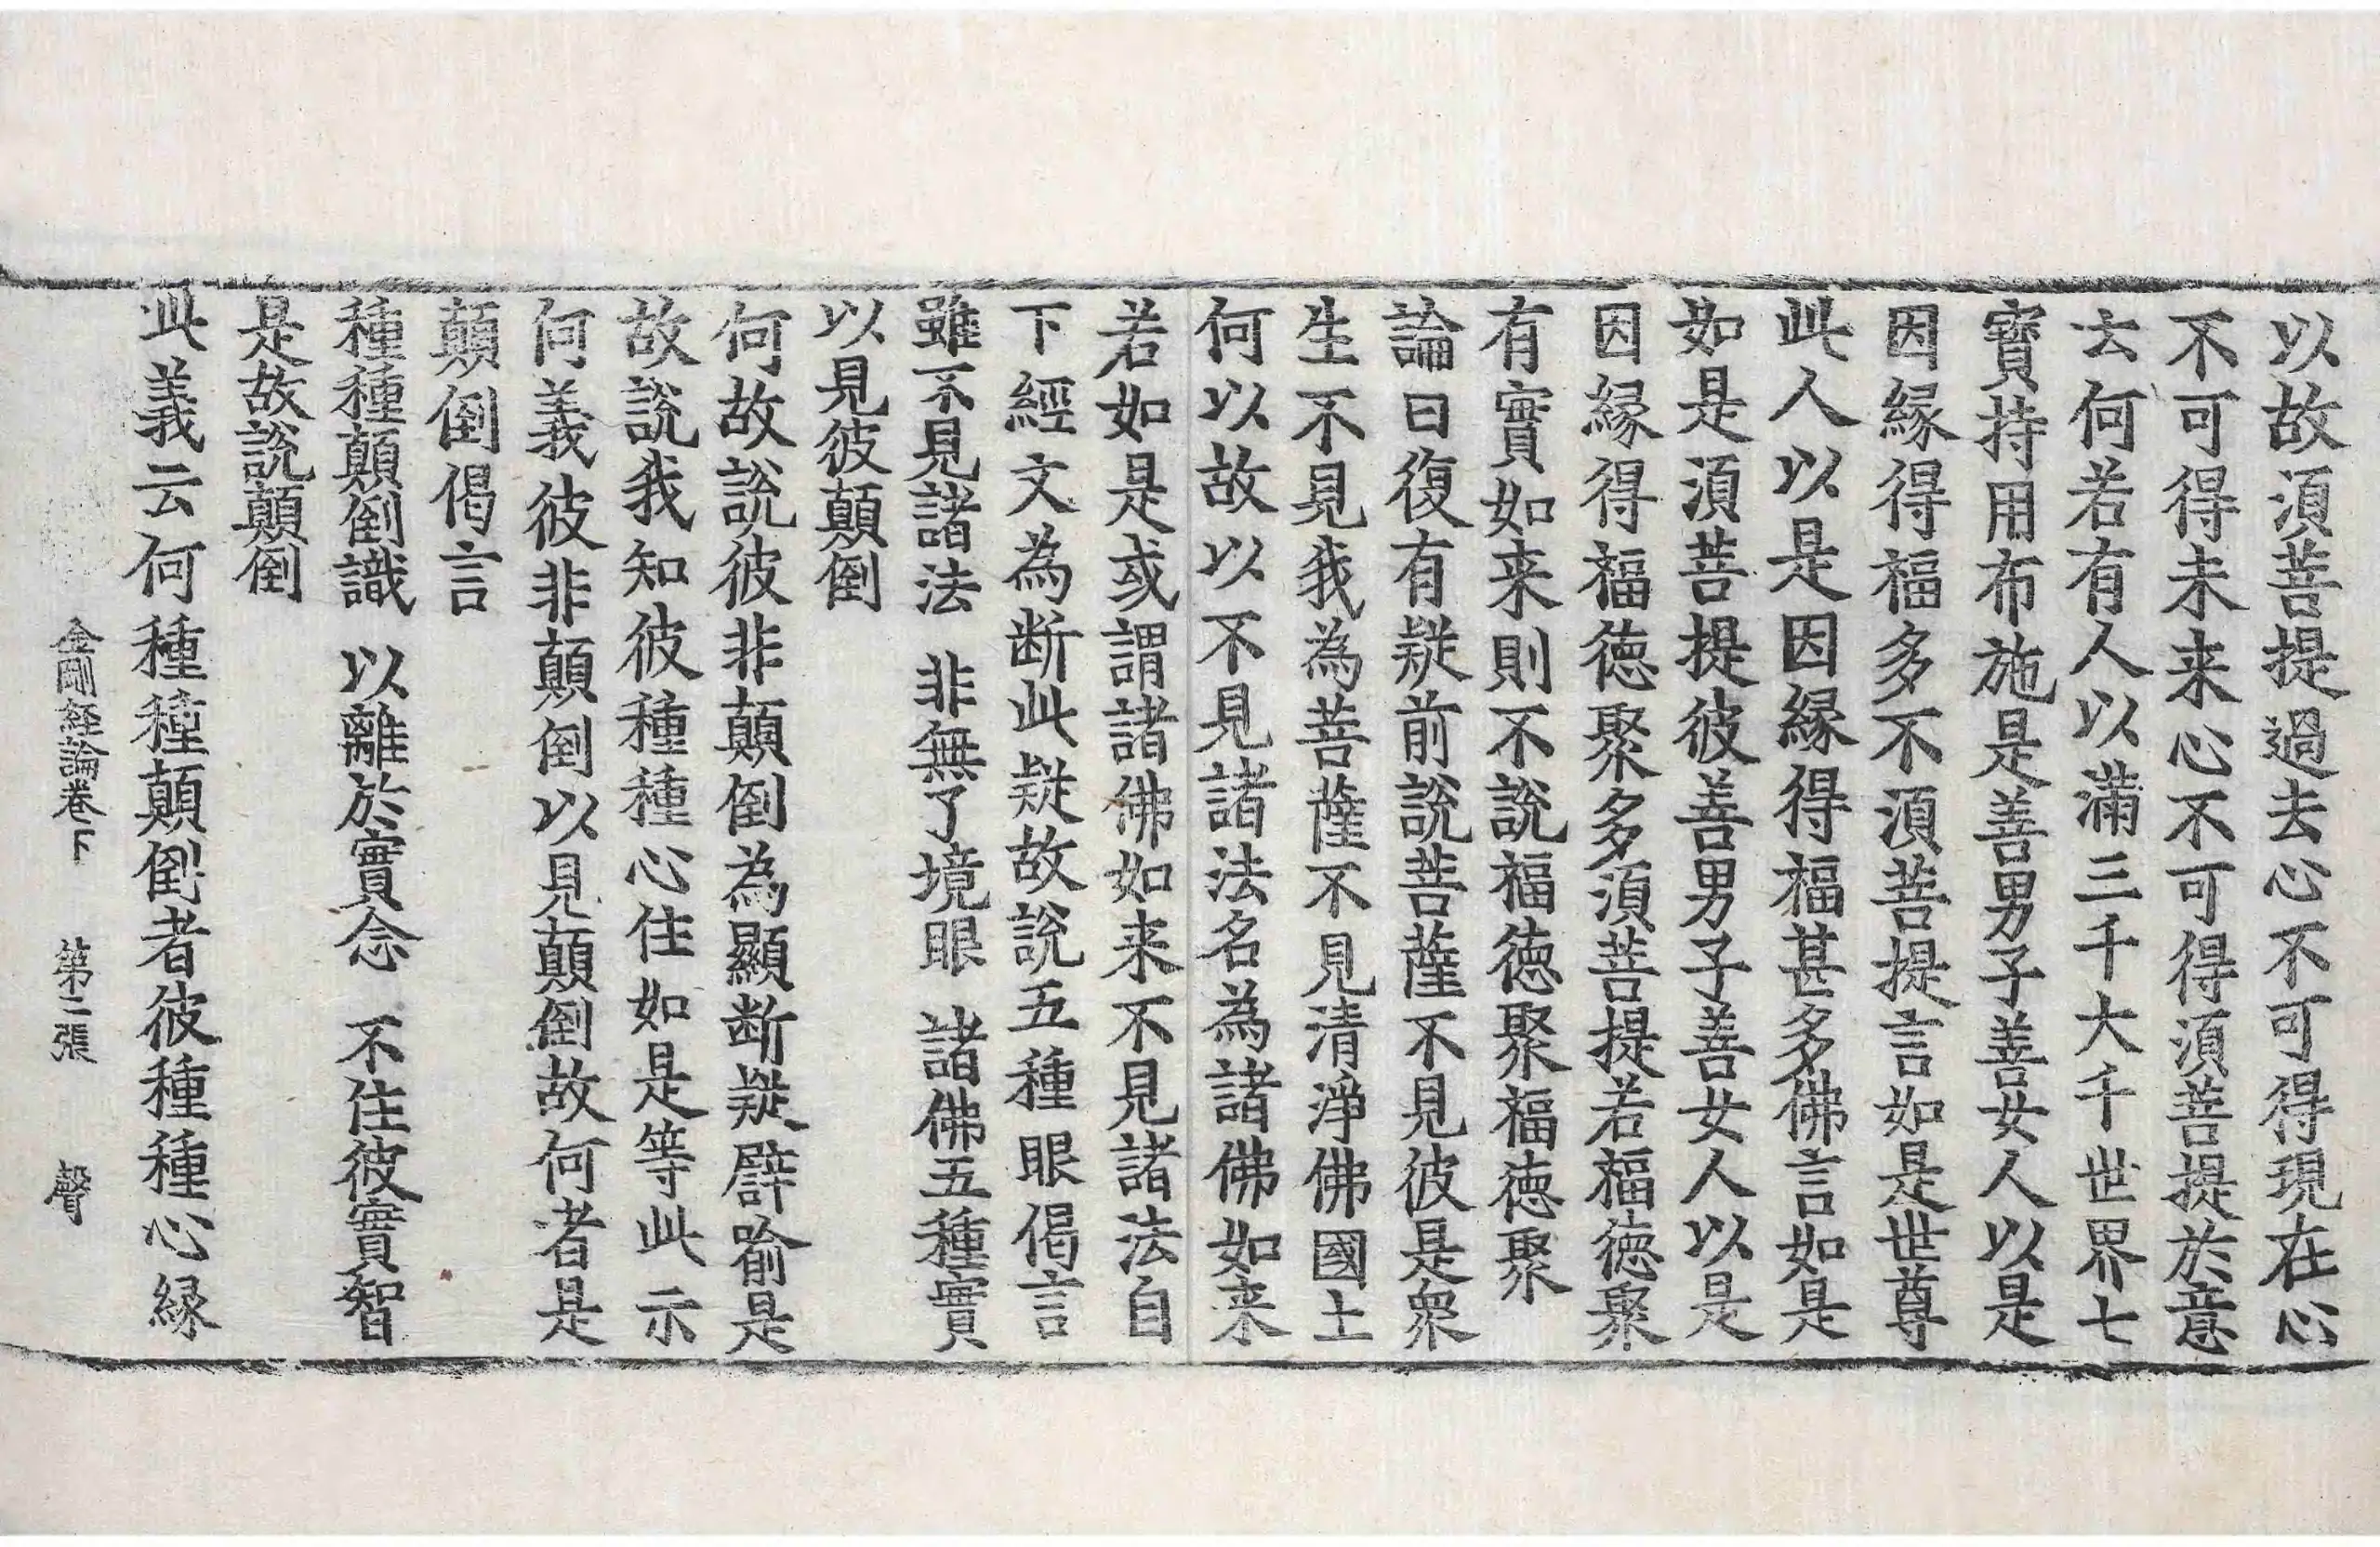 以故須菩提過去心不可得現在心
不可得未来心不可得須菩提於意
云何若有人以滿三千大千世界七
寶持用布施是善男子善女人以是
因緣得福多不須菩提言如是世尊
此人以是因緣得福甚多佛言如是
如是須菩提彼善男子善女人以是
因緣得福德聚多須菩提若福德聚
有實如来則不說福德聚福德聚
論曰復有疑前說菩薩不見彼是衆
生不見我為菩薩不見清淨佛國土
何以故以不見諸法名為諸佛如来
若如是或謂諸佛如来不見諸法自
下經文為断此疑故說五種眼偈言
雖不見諸法 非無了境眼 諸佛五種實
以見彼顛倒
何故說彼非顛倒為顯断疑譬喻是
故說我知彼種種心住如是等此示
何義彼非顛倒以見顛倒故何者是
顛倒偈言
種種顛倒識 以離於實念 不住彼實智
是故說顛倒
此義云何種種顛倒者彼種種心緣
金剛經論卷下 第二張 聲